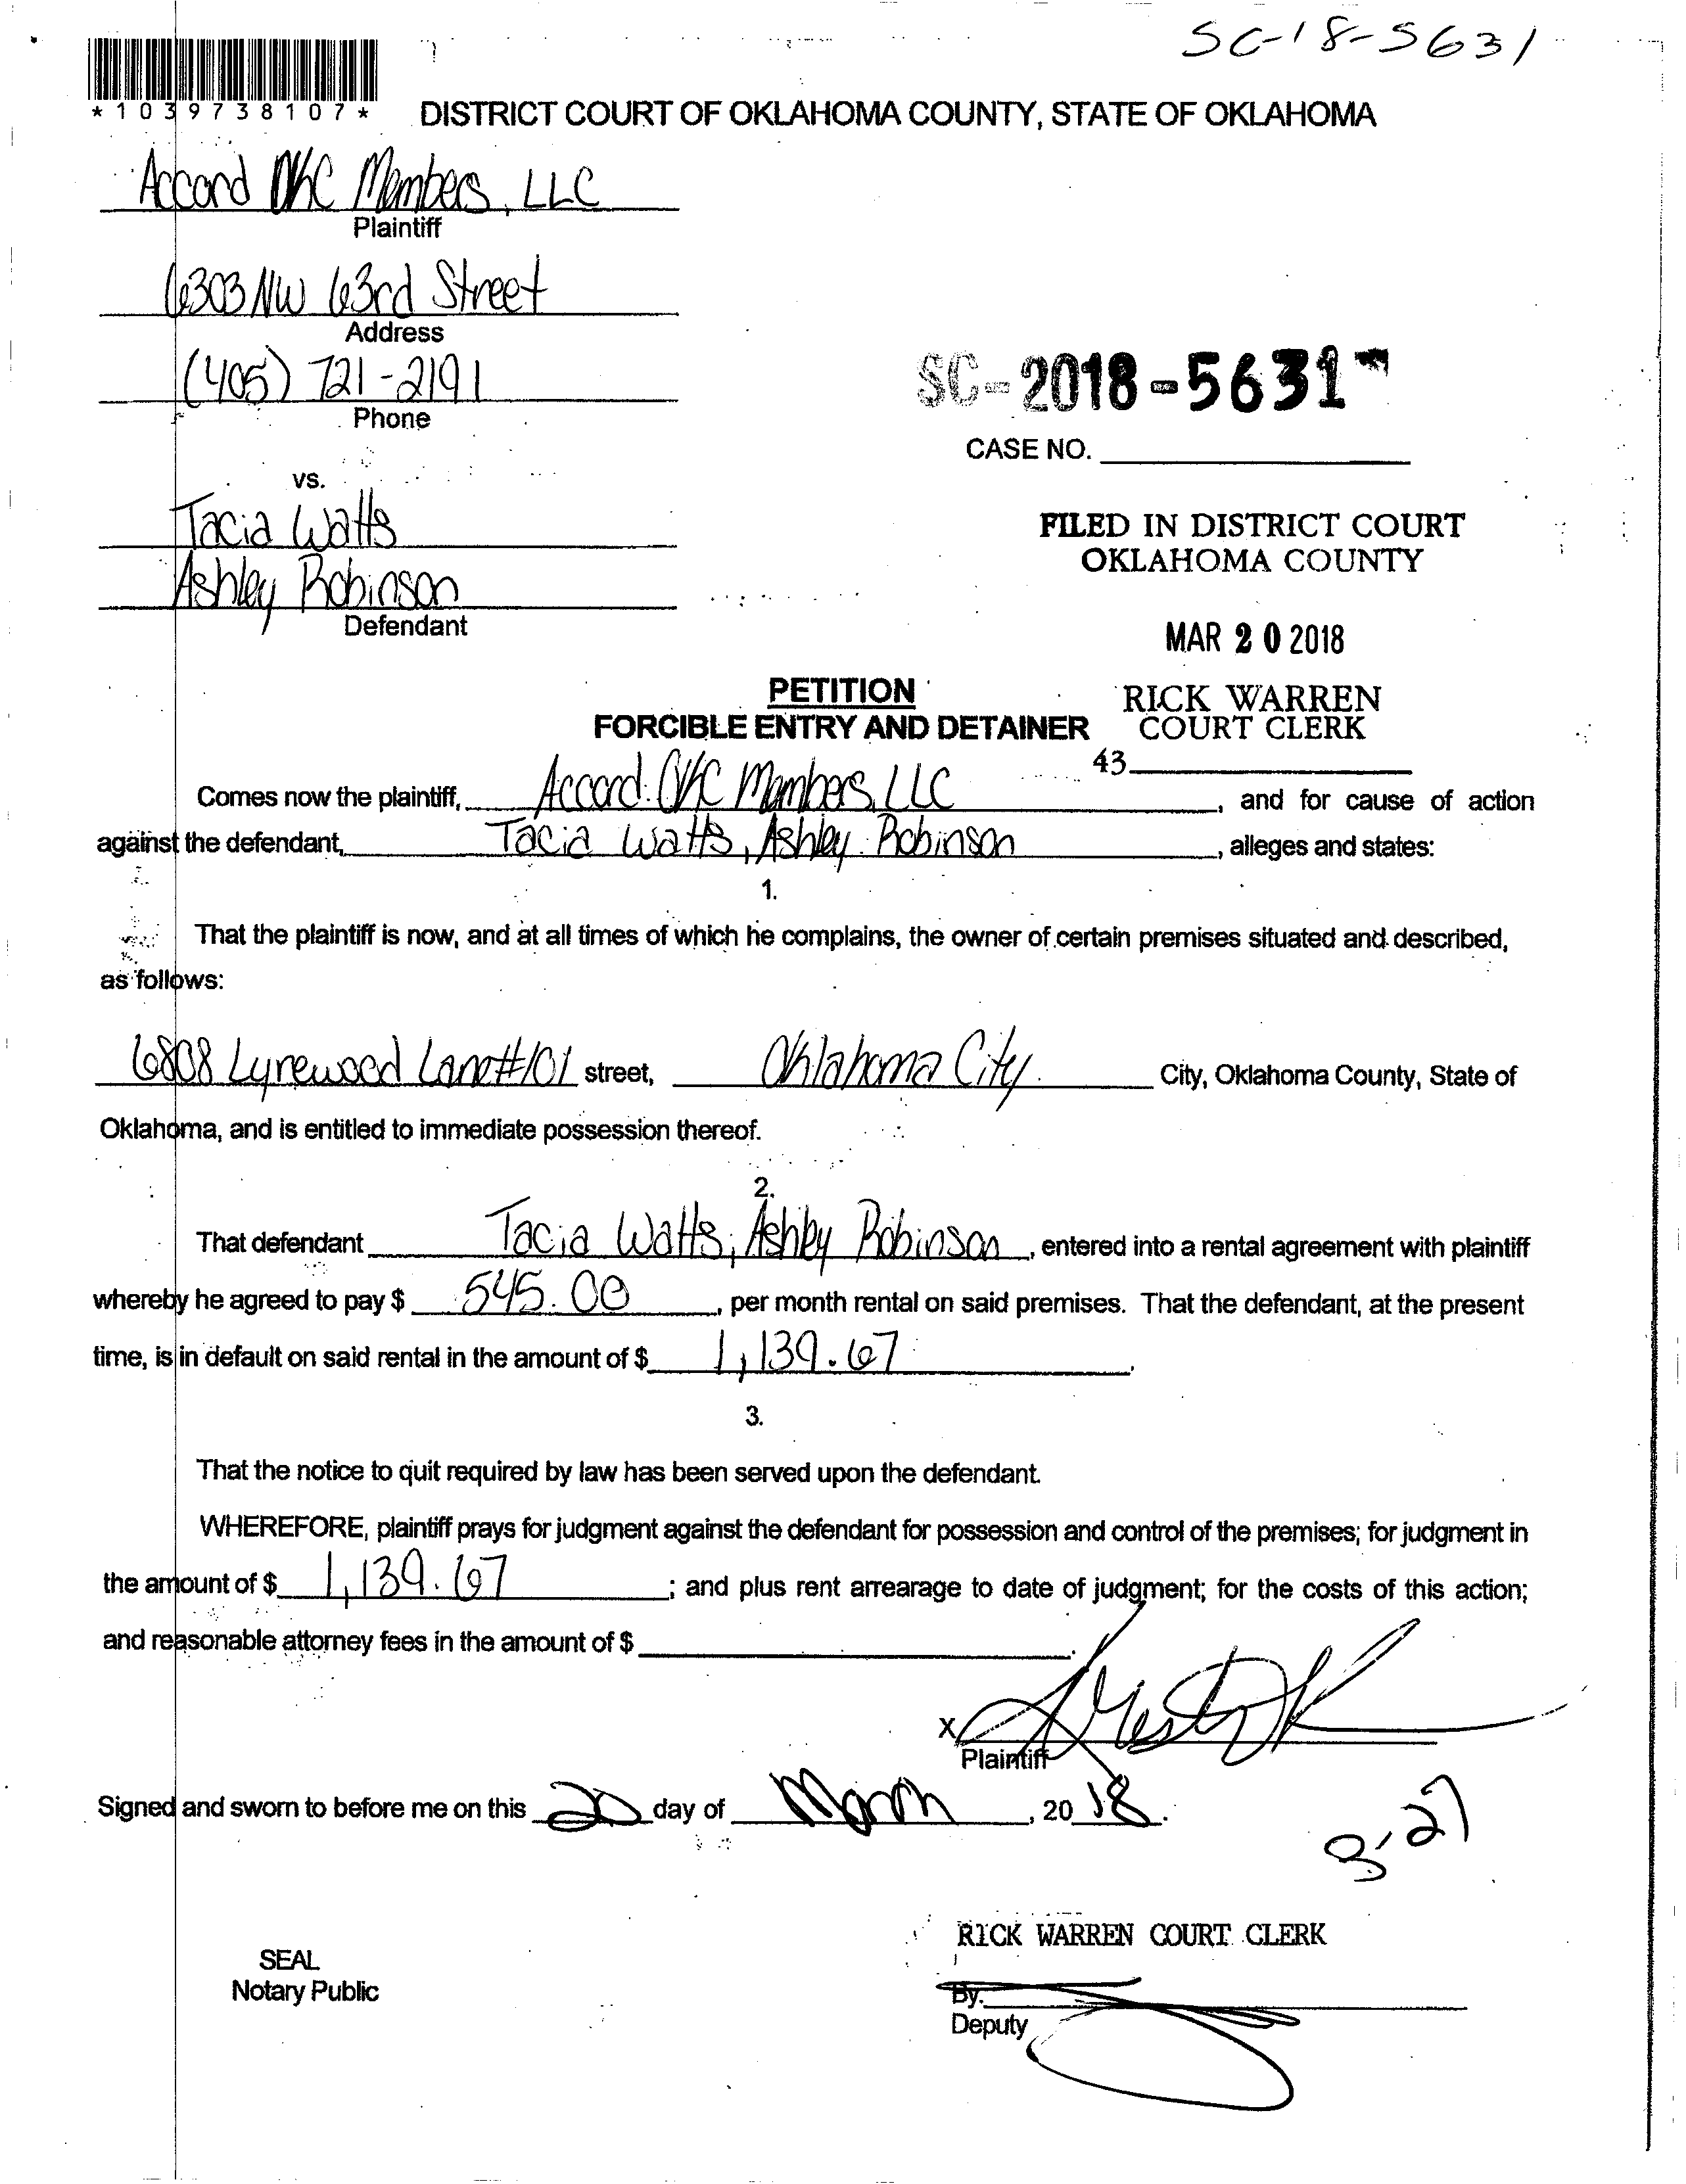 SC-18-5631
*1039738107*
DISTRICT COURT OF OKLAHOMA COUNTY, STATE OF OKLAHOMA
Accord OKC Members, LLC
Plaintiff
6303 NW 63rd Street
Address
(405) 721-2191
Phone
SC-2018-5631
CASE NO.
vs.
Tacia Watts
Ashley Robinson
Defendant
FILED IN DISTRICT COURT
OKLAHOMA COUNTY
MAR 20 2018
RICK WARREN
COURT CLERK
43
PETITION
FORCIBLE ENTRY AND DETAINER
Comes now the plaintiff, Accord OKC Members, LLC, and for cause of action
against the defendant, Tacia Watts, Ashley Robinson, alleges and states:
1.
That the plaintiff is now, and at all times of which he complains, the owner of certain premises situated and described,
as follows:
6808 Lyrewood Lane #101 street, Oklahoma City City, Oklahoma County, State of
Oklahoma, and is entitled to immediate possession thereof.
2.
That defendant Tacia Watts, Ashley Robinson, entered into a rental agreement with plaintiff
whereby he agreed to pay $ 545.00, per month rental on said premises. That the defendant, at the present
time, is in default on said rental in the amount of $ 1,139.67.
3.
That the notice to quit required by law has been served upon the defendant.
WHEREFORE, plaintiff prays for judgment against the defendant for possession and control of the premises; for judgment in
the amount of $ 1,139.67; and plus rent arrearage to date of judgment; for the costs of this action;
and reasonable attorney fees in the amount of $
X
Plaintiff
Signed and sworn to before me on this 20 day of March, 20 18.
3-27
RICK WARREN COURT CLERK
SEAL
Notary Public
By.
Deputy